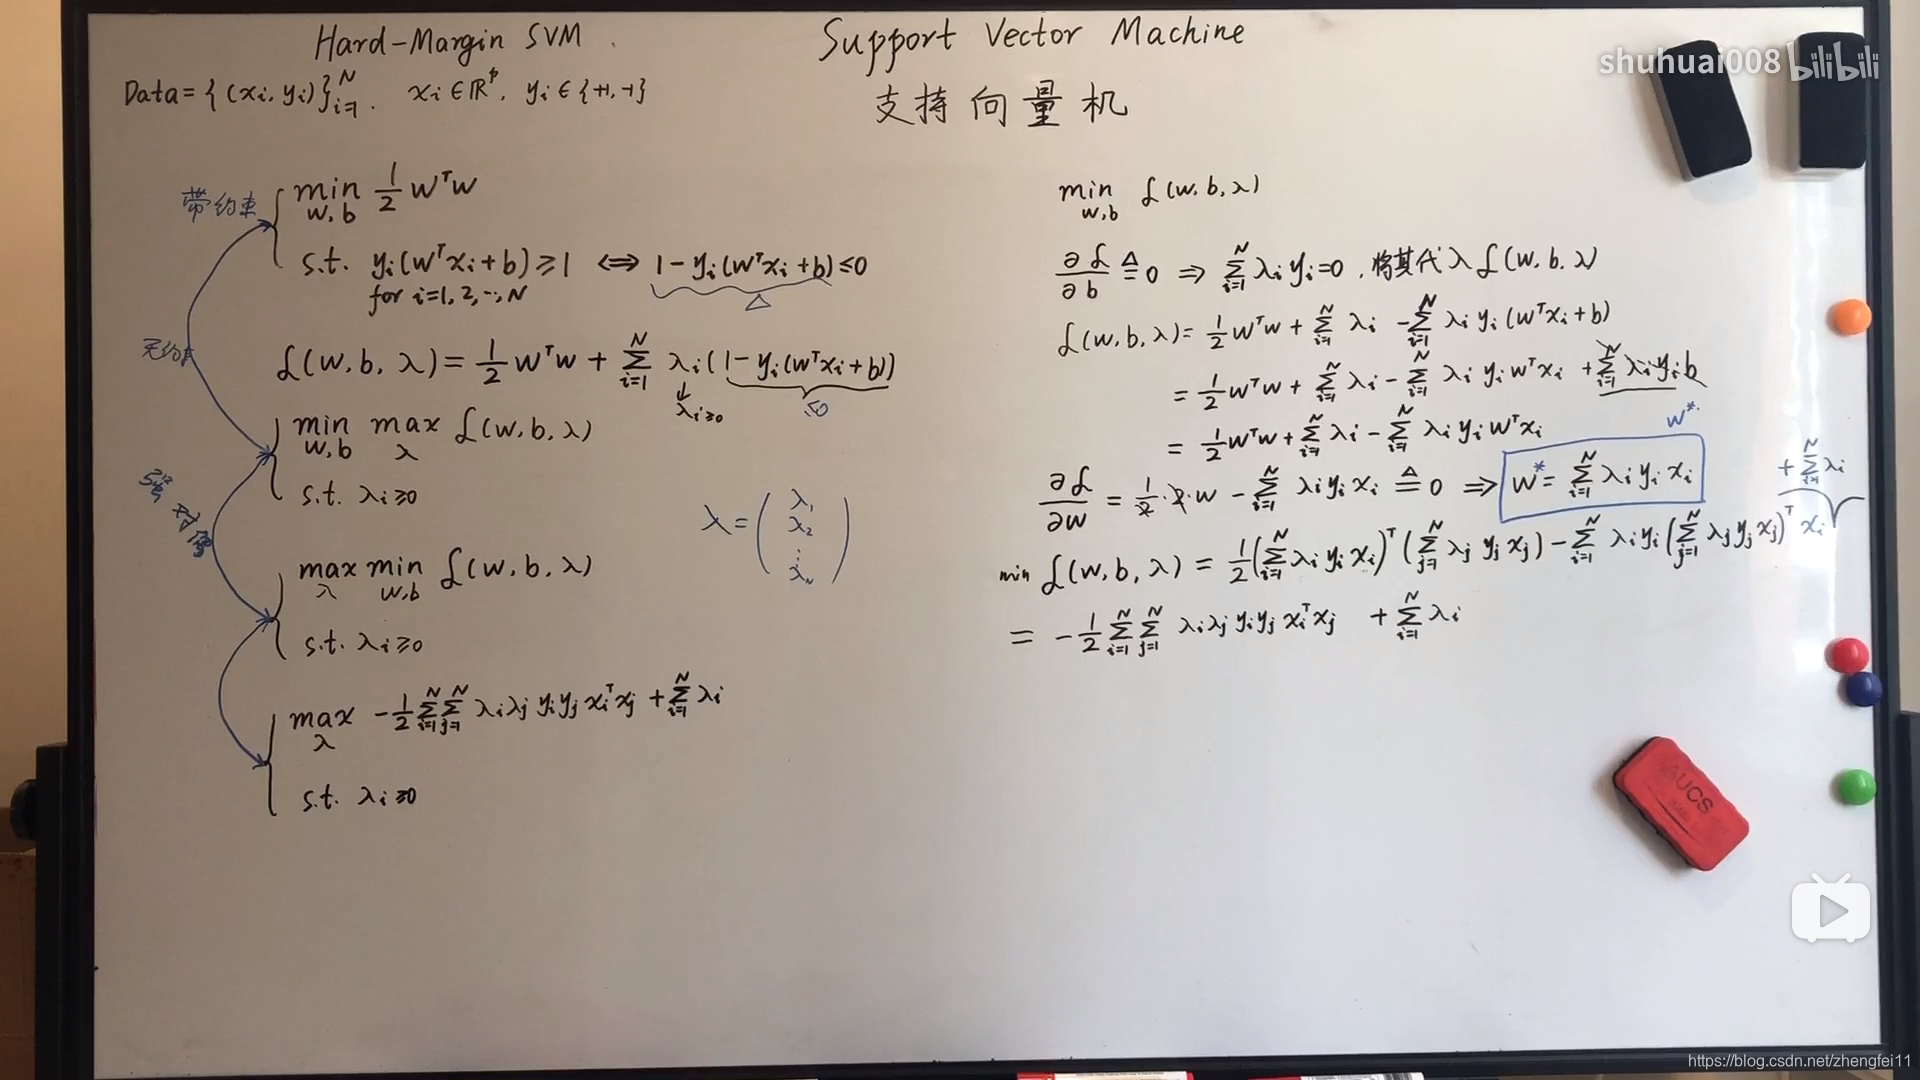 Hard-Margin SVM
Support Vector Machine
支持向量机
Data = {(xi, yi)}_{i=1}^N, xi ∈ ℝ^p, yi ∈ {+1, -1}
带约束
min_{w,b} 1/2 w^T w
s.t. yi(w^T xi + b) ≥ 1 ⟺ 1 - yi(w^T xi + b) ≤ 0
for i=1, 2, ..., N
△
无约束
ℒ(w, b, λ) = 1/2 w^T w + ∑_{i=1}^N λi(1 - yi(w^T xi + b))
λi ≥ 0
≤0
min_{w,b} max_λ ℒ(w, b, λ)
s.t. λi ≥ 0
强对偶
λ = (λ1 λ2 ⋮ λN)
max_λ min_{w,b} ℒ(w, b, λ)
s.t. λi ≥ 0
max_λ -1/2 ∑_{i=1}^N ∑_{j=1}^N λi λj yi yj xi^T xj + ∑_{i=1}^N λi
s.t. λi ≥ 0
min_{w,b} ℒ(w, b, λ)
∂ℒ/∂b ≜ 0 ⇒ ∑_{i=1}^N λi yi = 0, 将其代入 ℒ(w, b, λ)
ℒ(w, b, λ) = 1/2 w^T w + ∑_{i=1}^N λi - ∑_{i=1}^N λi yi (w^T xi + b)
= 1/2 w^T w + ∑_{i=1}^N λi - ∑_{i=1}^N λi yi w^T xi + ∑_{i=1}^N λi yi b
= 1/2 w^T w + ∑_{i=1}^N λi - ∑_{i=1}^N λi yi w^T xi
w*
∂ℒ/∂w = 1/2 · 2 · w - ∑_{i=1}^N λi yi xi ≜ 0 ⇒ w* = ∑_{i=1}^N λi yi xi
+ ∑_{i=1}^N λi
min ℒ(w, b, λ) = 1/2 (∑_{i=1}^N λi yi xi)^T (∑_{j=1}^N λj yj xj) - ∑_{i=1}^N λi yi (∑_{j=1}^N λj yj xj)^T xi
= -1/2 ∑_{i=1}^N ∑_{j=1}^N λi λj yi yj xi^T xj + ∑_{i=1}^N λi
shuhuai008 bilibili
AUCS
https://blog.csdn.net/zhengfei11